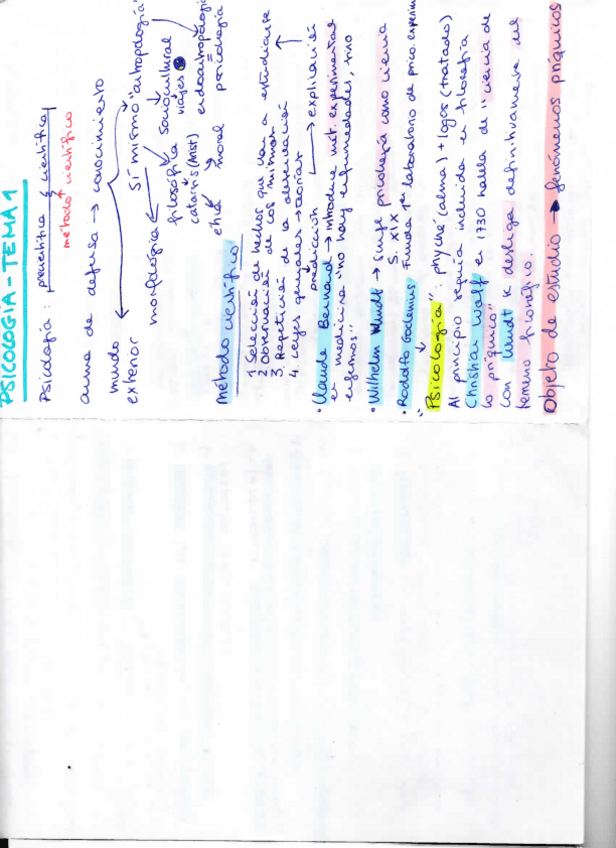 PSICOLOGÍA - TEMA 1
Psicología: precientífica y científica
método científico
arma de defensa → conocimiento
mundo exterior
sí mismo "antropología"
morfológica
sociocultural
viajes
filosófica
catarsis (Arist)
endoantropología
=
ética
moral
psicología
Método científico
1. Selección de hechos que van a estudiarse
2. Observación de los mismos
3. Repetición de la observación
4. Leyes generales → teorías
predicción
→ explicación
• Claude Bernard → introduce mét. experimental
en medicina "no hay enfermedades, sino
enfermos"
• Wilhelm Wundt → surge psicología como ciencia
S. XIX
Funda 1er laboratorio de psico. experim
• Rodolfo Goclenius
"Psicología": phyché (alma) + logos (tratado)
Al principio seguía incluida en filosofía
Christian Wolf en 1730 habla de "ciencia de
lo psíquico"
Con Wundt se desliga definitivamente del
terreno filosófico.
Objeto de estudio → fenómenos psíquicos